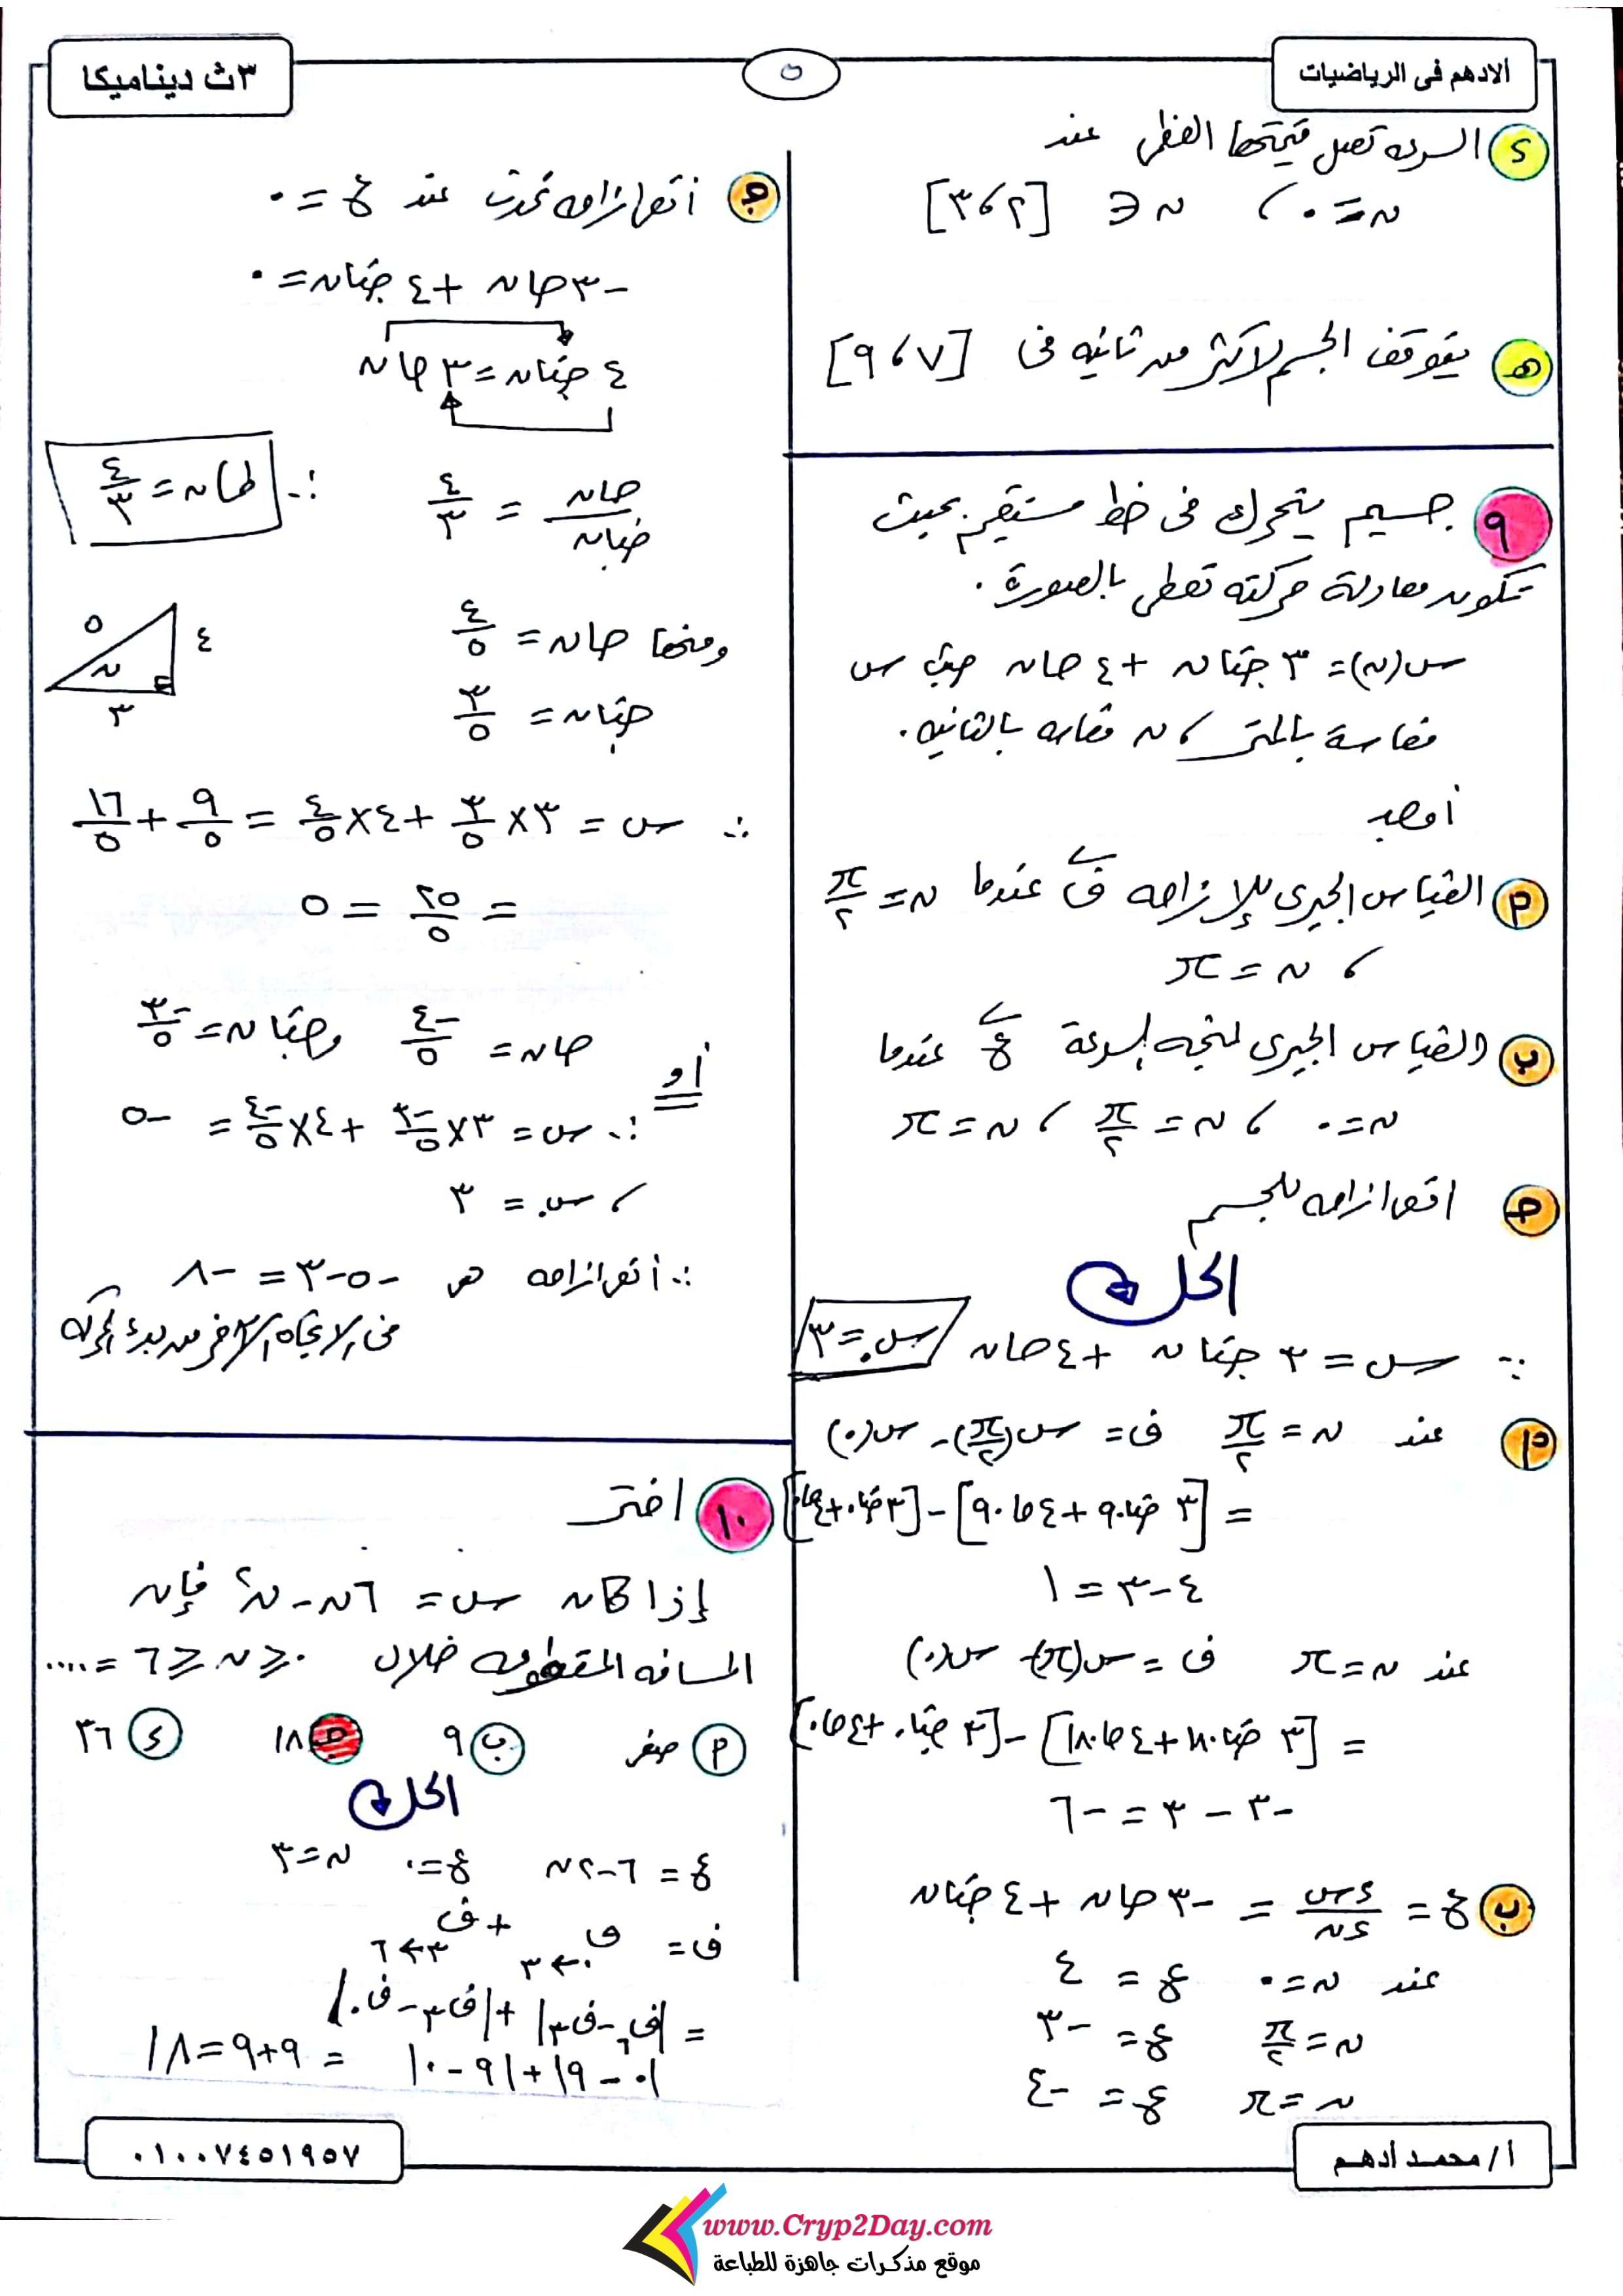 ألادهم فى الرياضيات
٥
٣ث ديناميكا
د السرعه تصل قيمتها العظمى عند
ن = ٠ ، ن ∈ [٢ ، ٣]
هـ يتوقف الجسم لأكثر من ثانيه فى [٧ ، ٩]
٩ جسيم يتحرك فى خط مستقيم بحيث
تكون معادلة حركته تعطى بالصورة.
س(ن) = ٣ جتان + ٤ حان حيث س
مقاسة بالمتر ، ن مقاسه بالثانيه.
أوجد
أ القياس الجبرى للإزاحه ف عندما ن = π/٢
، ن = π
ب القياس الجبرى لمتجه السرعة ع عندما
ن = ٠ ، ن = π/٢ ، ن = π
حـ اقصى ازاحه للجسم
الحل
∵ س = ٣ جتان + ٤ حان س.=٣
أ عند ن = π/٢ ف = س(π/٢) - س(٠)
= [٣ جتا٩٠ + ٤ حا٩٠] - [٣ جتا٠ + ٤ حا٠]
٤ - ٣ = ١
عند ن = π ف = س(π) - س(٠)
= [٣ جتا١٨٠ + ٤ حا١٨٠] - [٣ جتا٠ + ٤ حا٠]
-٣ - ٣ = -٦
ب ع = ءس/ءن = -٣ حان + ٤ جتان
عند ن = ٠ ع = ٤
ن = π/٢ ع = -٣
ن = π ع = -٤
جـ أقصى ازاحه تحدث عند ع = ٠
-٣ حان + ٤ جتان = ٠
٤ جتان = ٣ حان
حان/جتان = ٤/٣ ∴ طان = ٤/٣
ومنها حان = ٤/٥
جتان = ٣/٥
٥ ٤ ن ٣
∴ س = ٣ × ٣/٥ + ٤ × ٤/٥ = ٩/٥ + ١٦/٥
= ٢٥/٥ = ٥
أو حان = -٤/٥ وجتان = -٣/٥
∴ س = ٣ × -٣/٥ + ٤ × -٤/٥ = -٥
، س. = ٣
∴ أقصى ازاحه هى -٥ - ٣ = -٨
فى الاتجاه الآخر من بدء الحركه
١٠ اختر
إذا كان س = ٦ن - ن٢ فإن
المسافه المقطوعه خلال ٠ ≤ ن ≤ ٦ = ....
أ صفر ب ٩ جـ ١٨ ء ٣٦
الحل
ع = ٦ - ٢ن ع = ٠ ن = ٣
ف = ف ٠←٣ + ف ٣←٦
= |ف٦ - ف٣| + |ف٣ - ف٠|
|٠ - ٩| + |٩ - ٠| = ٩ + ٩ = ١٨
أ / محمد أدهم
٠١٠٠٧٤٥١٩٥٧
www.Cryp2Day.com
موقع مذكرات جاهزة للطباعة